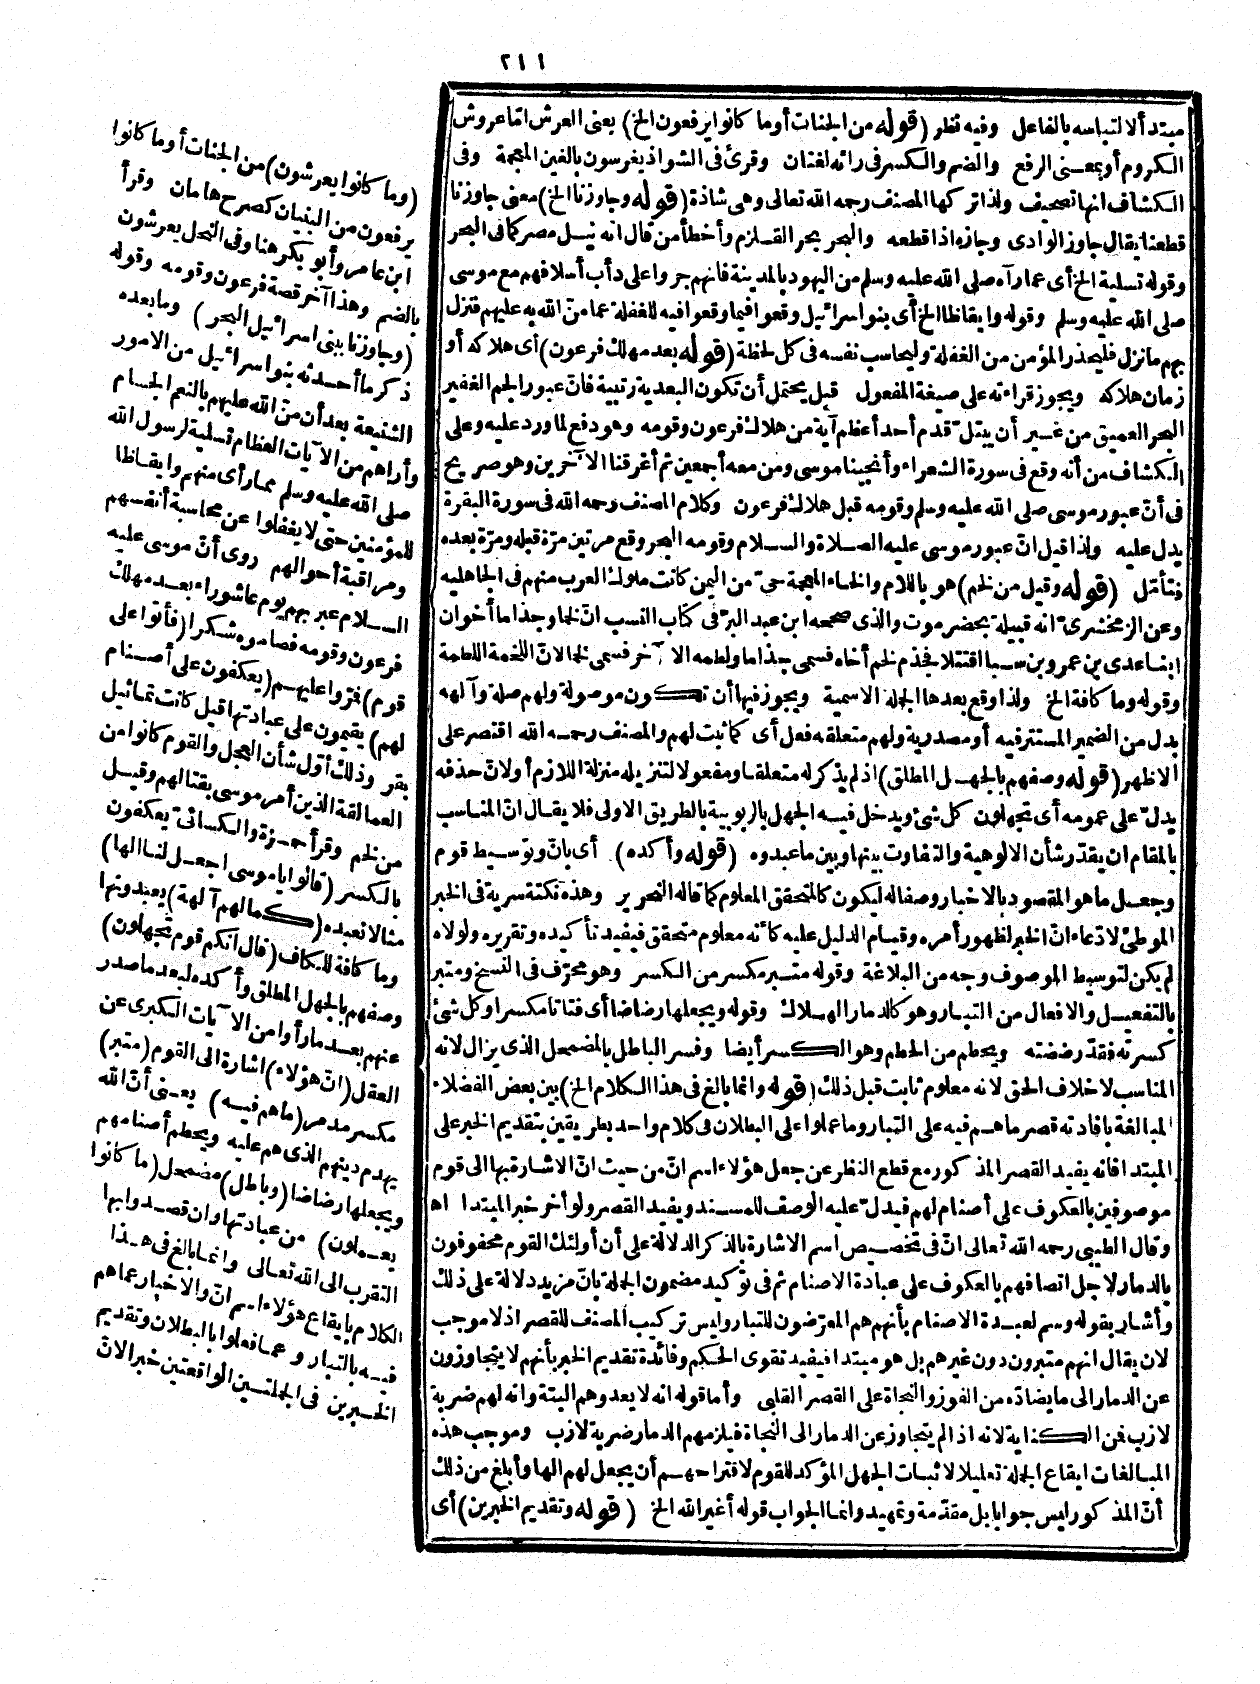 ٢١١
مبتدأ لالتباسه بالفاعل وفيه نظر (قوله من الجنات أو ما كانوا يرفعون الخ) يعنى العرش امّا عروش
الكروم أو بمعنى الرفع والضم والكسر فى رائه لغتان وقرئ فى الشواذ يغرسون بالغين المعجمة وفى
الكشاف انها تصحيف ولذا تركها المصنف رحمه الله تعالى وهى شاذة (قوله وجاوزنا الخ) معنى جاوزنا
قطعنا يقال جاوز الوادى وجازه اذا قطعه والبحر بحر القلزم وأخطأ من قال انه نيل مصر كما فى البحر
وقوله تسلية الخ أى عما رآه صلى الله عليه وسلم من اليهود بالمدينة فانهم جروا على دأب أسلافهم مع موسى
صلى الله عليه وسلم وقوله وايقاظا الخ أى بنو اسرائيل وقعوا فيما وقعوا فيه للغفلة عما منّ الله به عليهم فنزل
بهم ما نزل فليحذر المؤمن من الغفلة وليحاسب نفسه فى كل لحظة (قوله بعد مهلك فرعون) أى هلاكه أو
زمان هلاكه ويجوز قراءته على صيغة المفعول قيل يحتمل أن تكون البعدية رتبية فانّ عبور الجم الغفير
البحر العميق من غير أن يبتلّ قدم أحد أعظم آية من هلاك فرعون وقومه وهو دفع لما ورد عليه وعلى
الكشاف من أنه وقع فى سورة الشعراء وأنجينا موسى ومن معه أجمعين ثم أغرقنا الآخرين وهو صريح
فى أنّ عبور موسى صلى الله عليه وسلم وقومه قبل هلاك فرعون وكلام المصنف رحمه الله فى سورة البقرة
يدل عليه ولذا قيل انّ عبور موسى عليه الصلاة والسلام وقومه البحر وقع مرتين مرّة قبله ومرّة بعده
فتأمّل (قوله وقيل من لخم) هو باللام والخاء المعجمة حىّ من اليمن كانت ملوك العرب منهم فى الجاهلية
وعن الزمخشرىّ انه قبيلة بحضرموت والذى صححه ابن عبد البرّ فى كتاب النسب انّ لخما وجذاما أخوان
ابنا عدى بن عمرو بن سبا اقتتلا فجذم لخم أخاه فسمى جذاما ولطمه الآخر فسمى لخما لانّ اللخمة اللطمة
وقوله وما كافة الخ ولذا وقع بعدها الجملة الاسمية ويجوز فيها أن تكون موصولة ولهم صلة وآلهة
بدل من الضمير المستتر فيه أو مصدرية ولهم متعلق بفعل أى كما ثبت لهم والمصنف رحمه الله اقتصر على
الاظهر (قوله وصفهم بالجهل المطلق) اذ لم يذكر له متعلقا ومفعولا لتنزيله منزلة اللازم أو لانّ حذفه
يدلّ على عمومه أى تجهلون كل شئ ويدخل فيه الجهل بالربوبية بالطريق الاولى فلا يقال انّ المناسب
بالمقام ان يقدّر شأن الالوهية والتفاوت بينها وبين ما عبدوه (قوله وأكده) أى بانّ وتوسيط قوم
وجعل ما هو المقصود بالاخبار وصفا له ليكون كالمتحقق المعلوم كما قاله النحرير وهذه نكتة سرية فى الخبر
الموطئ لادّعاء انّ الخبر لظهور أمره وقيام الدليل عليه كأنه معلوم متحقق فيفيد تأكيده وتقريره ولولاه
لم يكن لتوسيط الموصوف وجه من البلاغة وقوله متبر مكسر من الكسر وهو محرّف فى النسخ ومتبر
بالتفعيل والافعال من التبار وهو كالدمار الهلاك وقوله ويجعلها رضاضا أى فتاتا مكسرا وكل شئ
كسرته فقد رضضته ويحطم من الحطم وهو الكسر أيضا وفسر الباطل بالمضمحل الذى يزال لانه
المناسب لا خلاف الحق لانه معلوم ثابت قبل ذلك (قوله وانما بالغ فى هذا الكلام الخ) بين بعض الفضلاء
المبالغة بافادته قصر ما هم فيه على التبار وما عملوا على البطلان فى كلام واحد بطريقين بتقديم الخبر على
المبتدا فانه يفيد القصر المذكور مع قطع النظر عن جعل هؤلاء اسم انّ من حيث انّ الاشارة بها الى قوم
موصوفين بالعكوف على أصنام لهم فيدلّ عليه الوصف للمسند ويفيد القصر ولو أخر خبر المبتدا اه
وقال الطيبى رحمه الله تعالى انّ فى تخصيص اسم الاشارة بالذكر الدلالة على أن أولئك القوم محفوفون
بالدمار لاجل اتصافهم بالعكوف على عبادة الاصنام ثم فى توكيد مضمون الجملة بانّ مزيد دلالة على ذلك
وأشار بقوله وسم لعبدة الاصنام بأنهم هم المعرّضون للتبار وليس تركيب المصنف للقصر اذ لا موجب
لان يقال انهم متبرون دون غيرهم بل هو مبتدا فيفيد تقوى الحكم وفائدة تقديم الخبر بأنهم لا يتجاوزون
عن الدمار الى ما يضادّه من الفوز والنجاة على القصر القلبى وأما قوله انه لا يعدوهم البتة وانه لهم ضربة
لازب فمن الكناية لانه اذا لم يتجاوز عن الدمار الى النجاة فيلزمهم الدمار ضربة لازب وموجب هذه
المبالغات ايقاع الجملة تعليلا لاثبات الجهل المؤكد للقوم لاقتراحهم أن يجعل لهم الها وأبلغ من ذلك
أنّ المذكور ليس جوابا بل مقدّمة وتمهيد وانما الجواب قوله أغير الله الخ (قوله وتقديم الخبرين) أى
(وما كانوا يعرشون) من الجنات أو ما كانوا
يرفعون من البنيان كصرح هامان وقرأ
ابن عامر وأبو بكر هنا وفى النحل يعرشون
بالضم وهذا آخر قصة فرعون وقومه وقوله
(وجاوزنا ببنى اسرائيل البحر) وما بعده
ذكر ما أحدثه بنو اسرائيل من الامور
الشنيعة بعد أن منّ الله عليهم بالنعم الجسام
وأراهم من الآيات العظام تسلية لرسول الله
صلى الله عليه وسلم مما رأى منهم وايقاظا
للمؤمنين حتى لا يغفلوا عن محاسبة أنفسهم
ومراقبة أحوالهم روى أنّ موسى عليه
السلام عبر بهم يوم عاشوراء بعد مهلك
فرعون وقومه فصاموه شكرا (فأتوا على
قوم) فمرّوا عليهم (يعكفون على أصنام
لهم) يقيمون على عبادتها قيل كانت تماثيل
بقر وذلك أوّل شأن العجل والقوم كانوا من
العمالقة الذين أمر موسى بقتالهم وقيل
من لخم وقرأ حمزة والكسائىّ يعكفون
بالكسر (قالوا يا موسى اجعل لنا الها)
مثالا نعبده (كما لهم آلهة) يعبدونها
وما كافة للكاف (قال انكم قوم تجهلون)
وصفهم بالجهل المطلق وأكده لبعد ما صدر
عنهم بعد ما رأوا من الآيات الكبرى عن
العقل (انّ هؤلاء) اشارة الى القوم (متبر)
مكسر مدمر (ما هم فيه) يعنى أنّ الله
يهدم دينهم الذى هم عليه ويحطم أصنامهم
ويجعلها رضاضا (وباطل) مضمحل (ما كانوا
يعملون) من عبادتها وان قصدوا بها
التقرب الى الله تعالى وانما بالغ فى هذا
الكلام بايقاع هؤلاء اسم انّ والاخبار عما هم
فيه بالتبار وعما فعلوا بالبطلان وتقديم
الخبرين فى الجملتين الواقعتين خبرا لانّ